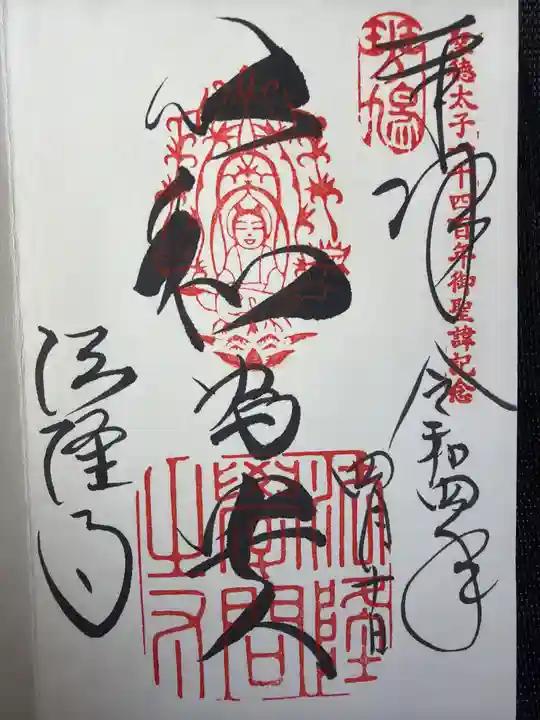 奉拝
斑鳩
聖徳太子一千四百年御聖諱記念
令和四年
四月
以和為貴
法隆學問之寺
法隆寺